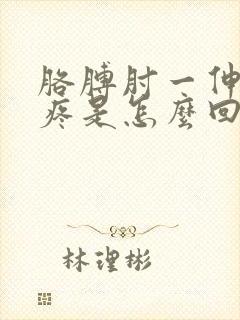 胳膊肘一伸
疼是怎麼回
林理彬